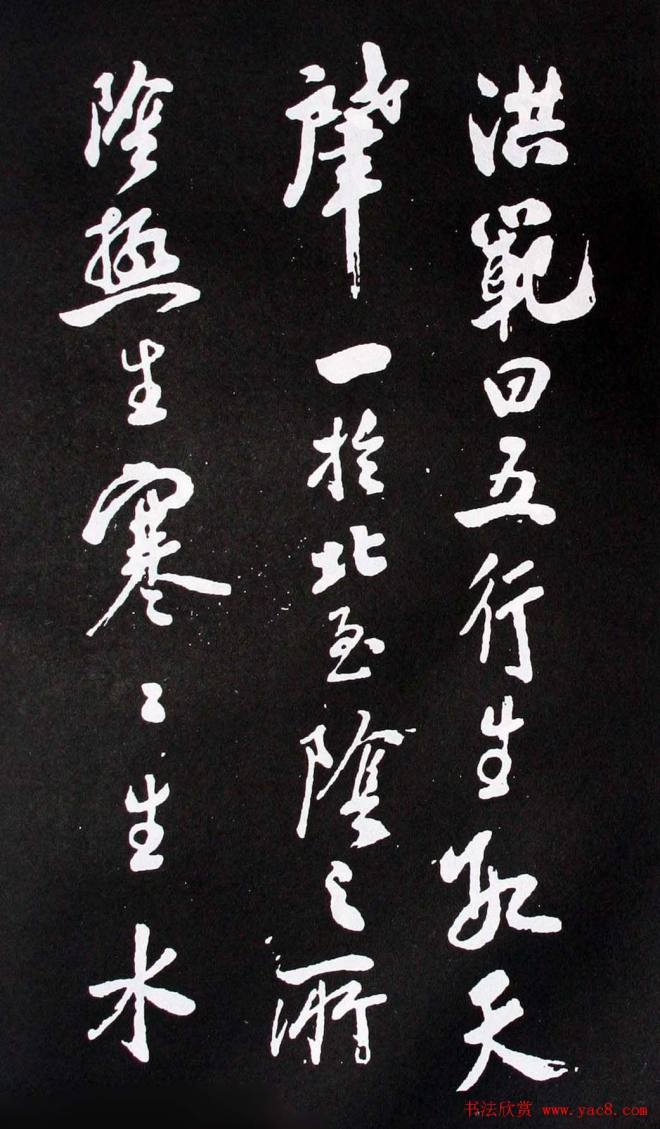 洪範曰五行生數天
肇一於北至陰之所
陰極生寒〻生水
书法欣赏 www.yac8.com